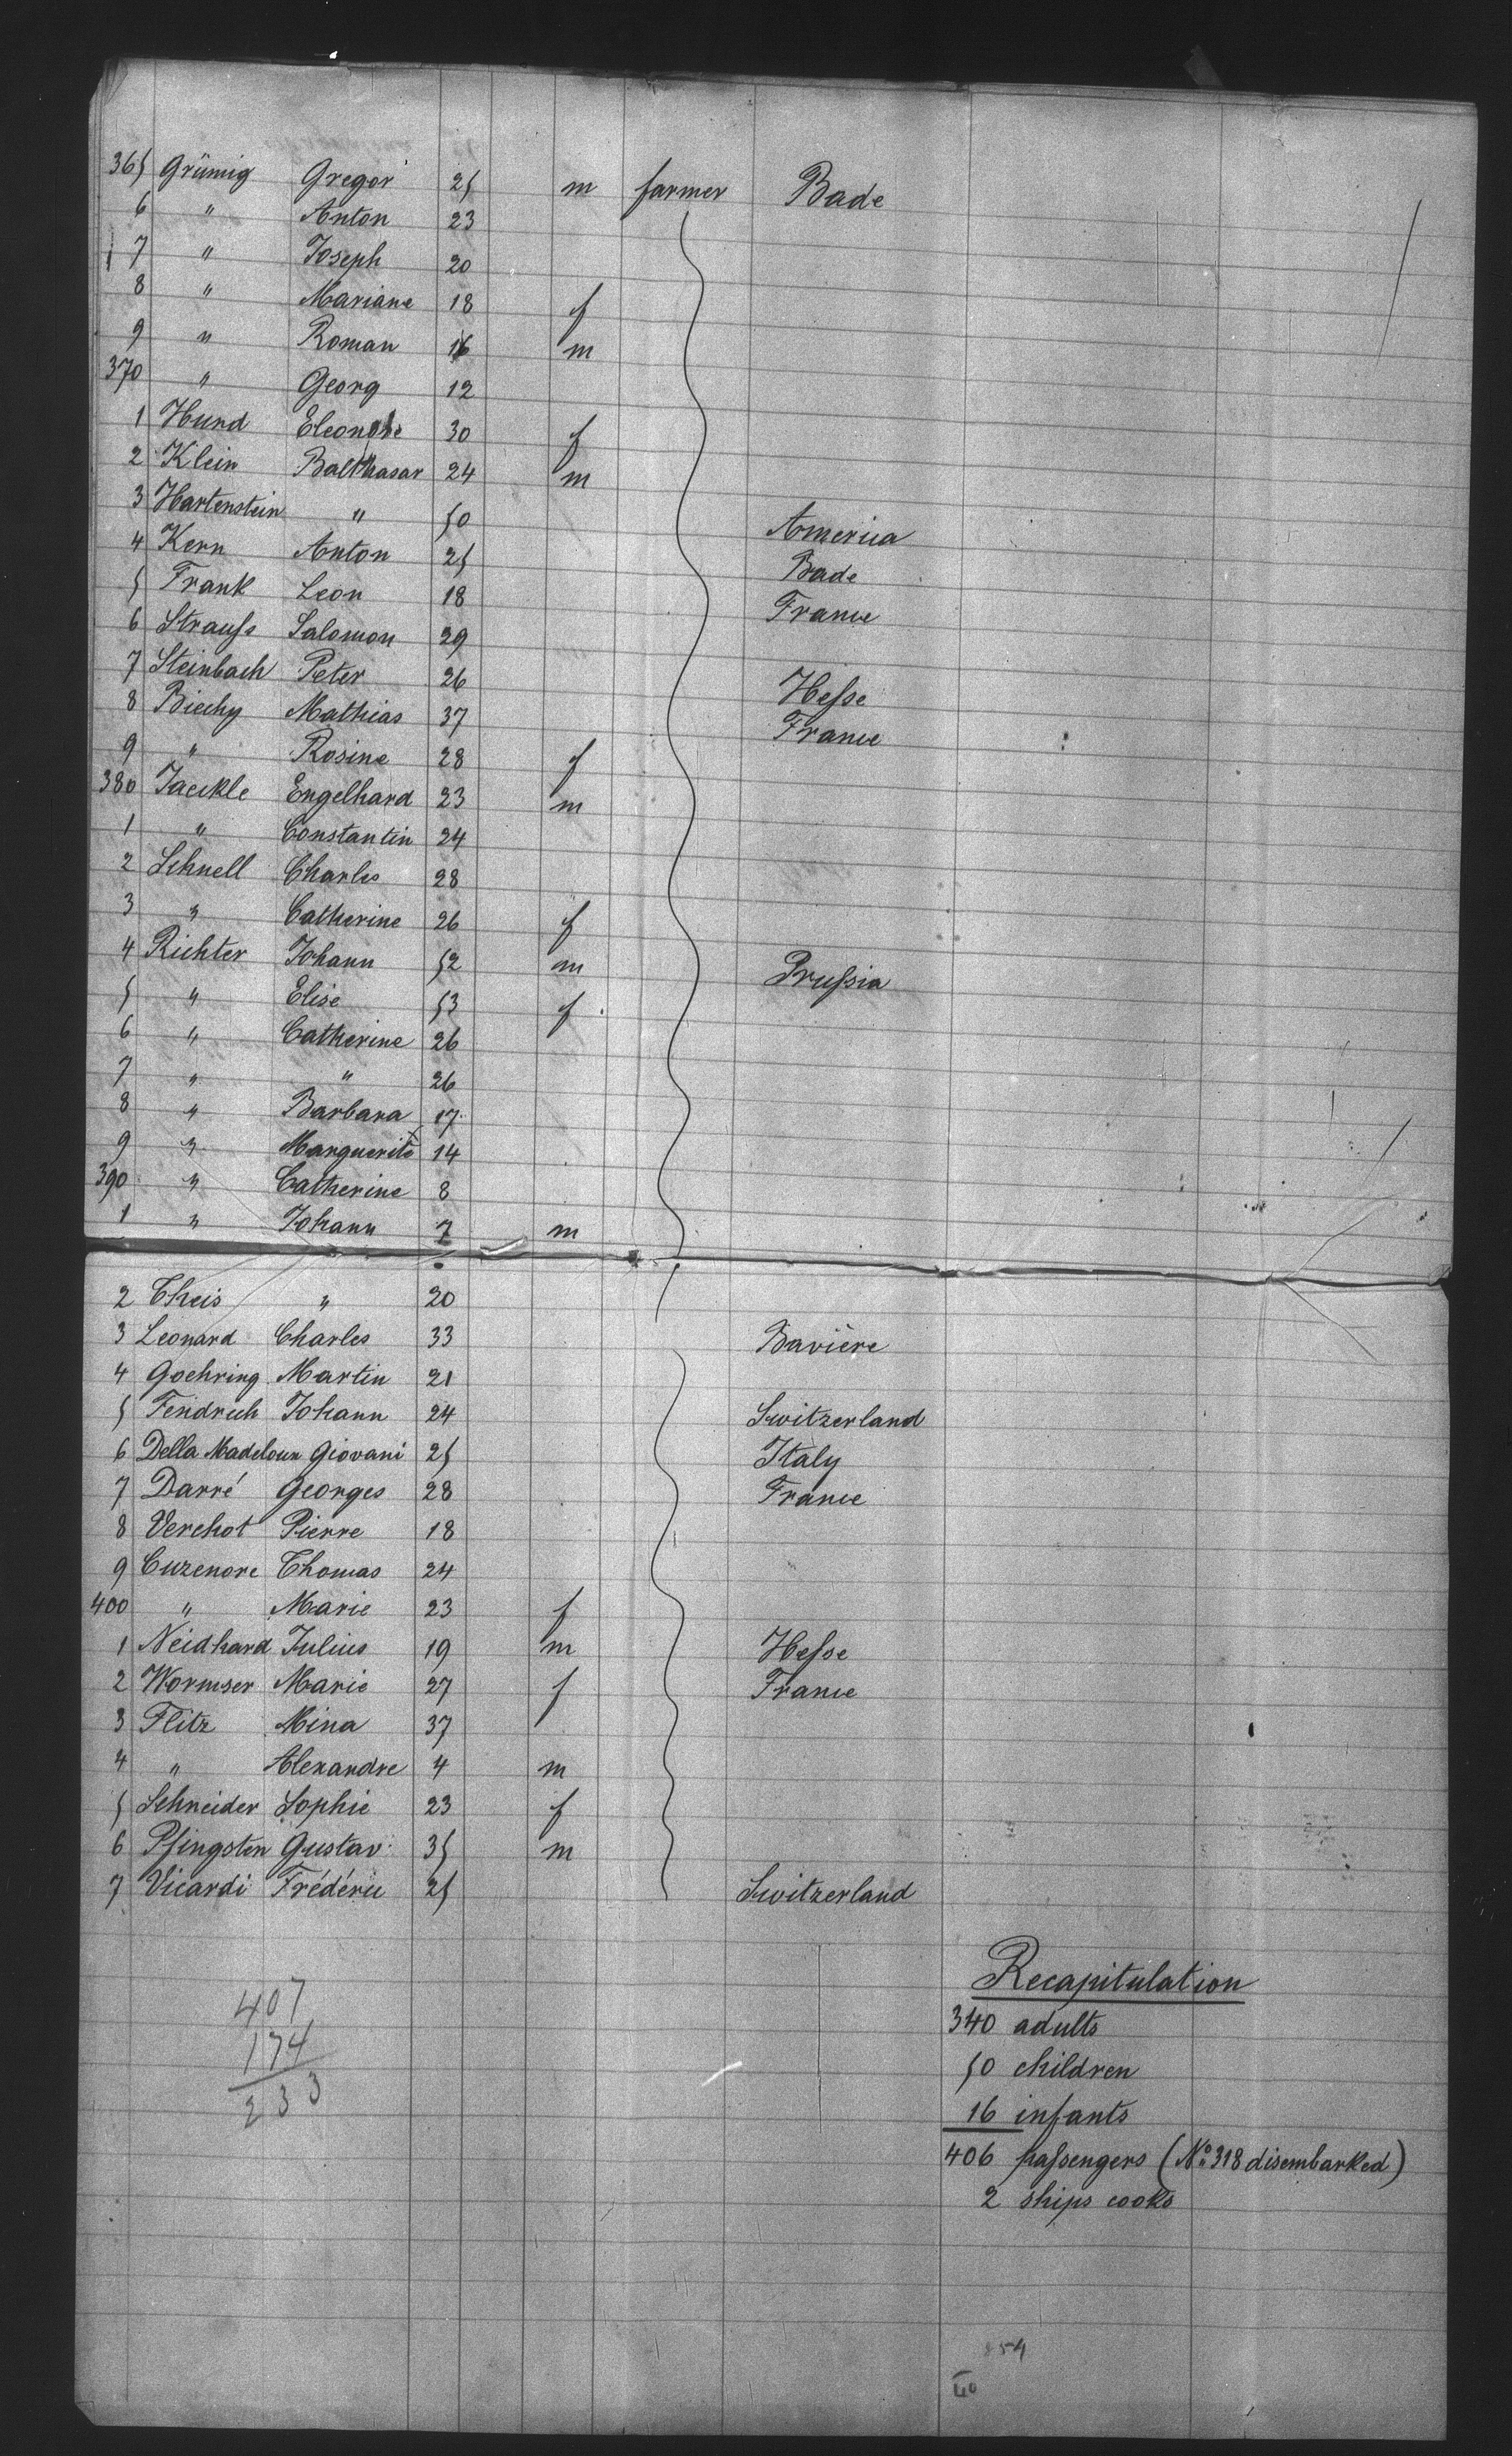 365 Grümig Gregor 25 m farmer Bade
6 " Anton 23
7 " Joseph 20
8 " Mariane 18 f
9 " Roman 16 m
370 " Georg 12
1 Hund Eleonore 30 f
2 Klein Balthasar 24 m
3 Hartenstein " 50 America
4 Kern Anton 25 Bade
5 Frank Leon 18 France
6 Strauss Salomon 29
7 Steinbach Peter 26 Hesse
8 Biechy Mathias 37 France
9 " Rosine 28 f
380 Jaeckle Engelhard 23 m
1 " Constantin 24
2 Schnell Charles 28
3 " Catherine 26 f
4 Richter Johann 52 m Prussia
5 " Elise 53 f
6 " Catherine 26
7 " " 26
8 " Barbara 17
9 " Marguerite 14
390 " Catherine 8
1 " Johann 7 m
2 Theis " 20
3 Leonard Charles 33 Bavière
4 Goehring Martin 21
5 Fendrich Johann 24 Switzerland
6 Della Madeloun Giovani 25 Italy
7 Darré Georges 28 France
8 Verchot Pierre 18
9 Cuzenore Thomas 24
400 " Marie 23 f
1 Neidhard Julius 19 m Hesse
2 Wormser Marie 27 f France
3 Flitz Mina 37
4 " Alexandre 4 m
5 Schneider Sophie 23 f
6 Pfingsten Gustav 35 m
7 Vicardi Frédéric 25 Switzerland
407
174
233
Recapitulation
340 adults
50 children
16 infants
406 passengers (No 318 disembarked)
2 ships cooks